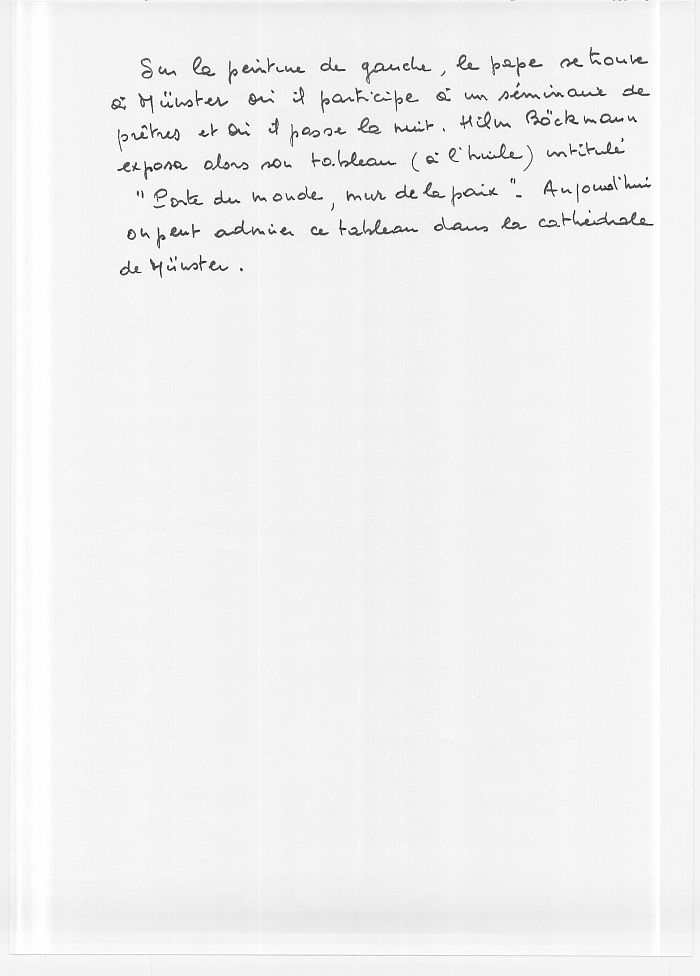 Sur la peinture de gauche, le pape se trouve
à Münster où il participe à un séminaire de
prêtres et où il passe la nuit. Hilm Böckmann
exposa alors son tableau (à l'huile) intitulé
"Porte du monde, mur de la paix". Aujourd'hui
on peut admirer ce tableau dans la cathédrale
de Münster.